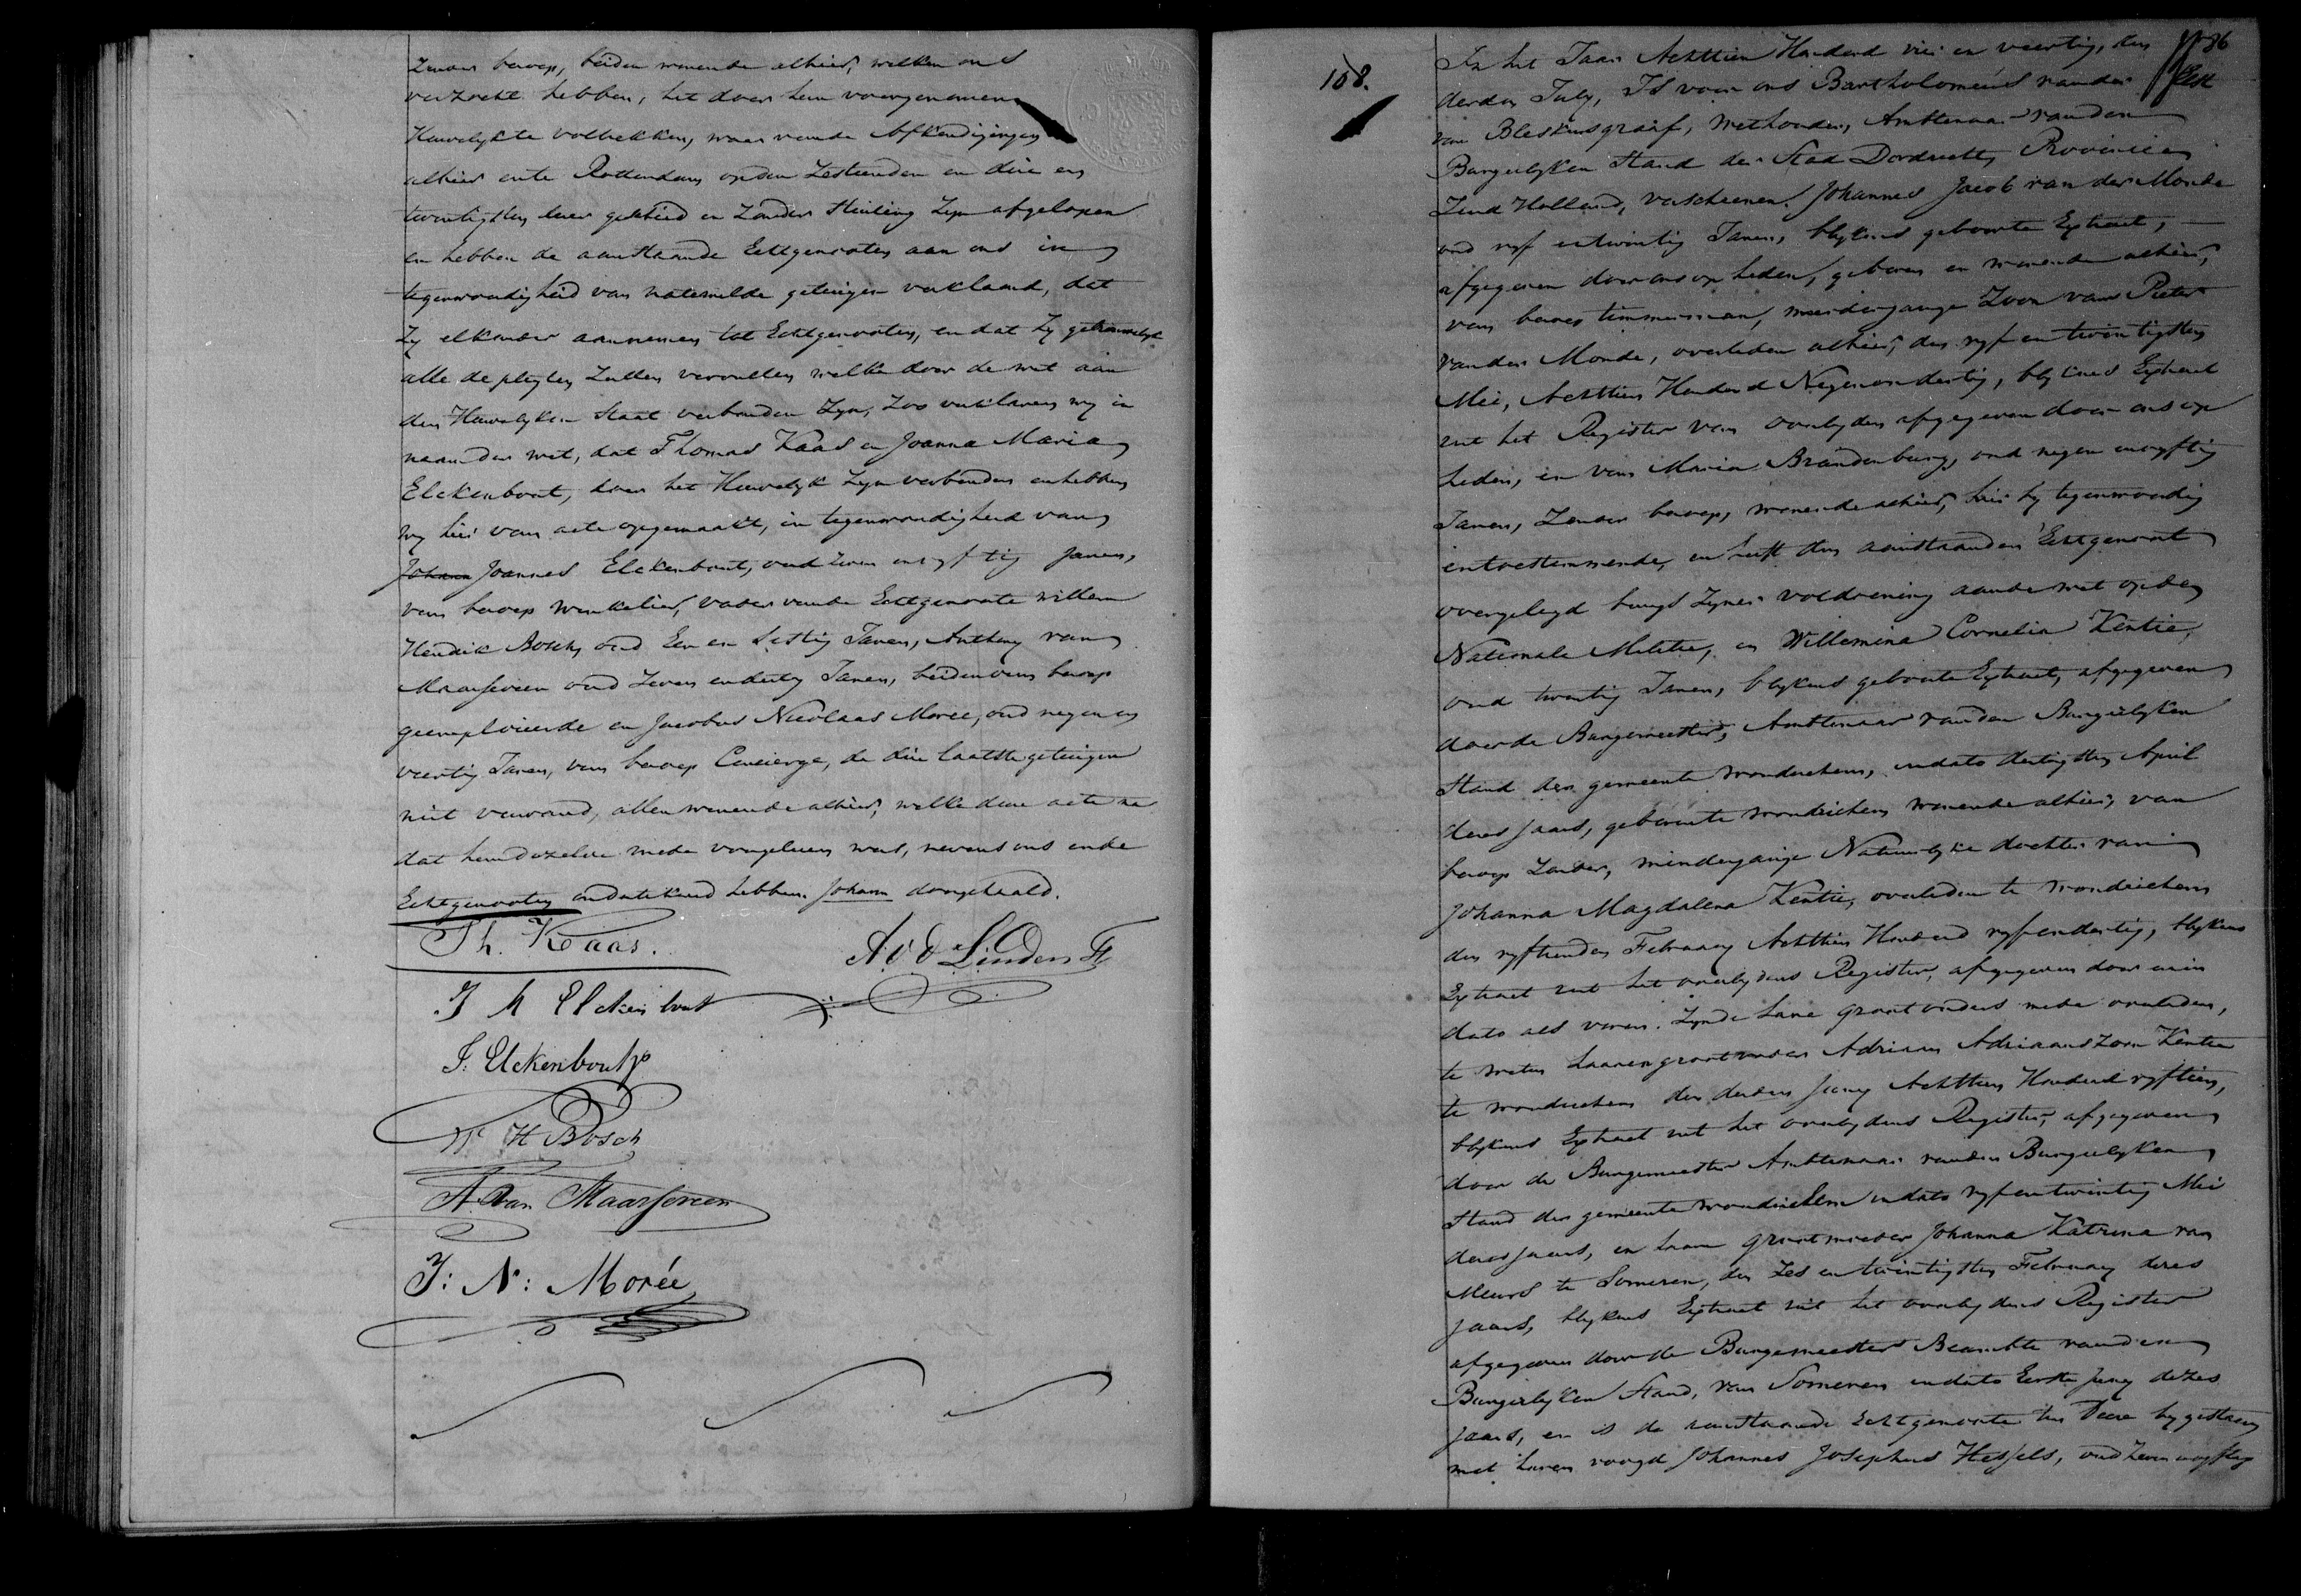 zonder beroep, beiden wonende alhier, welken ons
verzocht hebben, het door hun voorgenomen
Huwelyk te voltrekken, waar van de Afkondigingen
alhier en te Rotterdam op den zestienden en drie en
twintigsten dezer geschied en zonder Stuiting zyn afgelopen
en hebben de aanstaande Echtgenooten aan ons in
tegenwoordigheid van natemelde getuigen verklaard, dat
Zy elkander aannemen tot Echtgenooten, en dat Zy getrouwelyk
alle de pligten Zullen vervullen welke door de wet aan
den Huwelyken Staat verbonden Zyn, Zoo verklaren wy in
naam der wet, dat Thomas Kaas en Joanna Maria
Elckenbout, door het Huwelyk Zyn verbonden en hebben
wy hier van acte opgemaakt, in tegenwoordigheid van
Johann Joannes Elckenbout, oud zeven en vyftig Jaren,
van beroep Winkelier, vader van de Echtgenoote Willem
Hendrik Bosch, oud Een en Sestig Jaren, Anthony van
Maarseveen oud Zeven en dertig Jaren, beiden van beroep
geemploieerde en Jacobus Nicolaas Morée, oud negen en
veertig Jaren, van beroep Concierge, de drie laatste getuigen
niet verwand, allen wonende alhier, welke deze acte na
dat hun dezelve mede voorgelezen was, nevens ons en de
Echtgenooten ondertekend hebben. Johann doorgehaald.
Th. Kaas.
A v d Linden Fz
J M Elckenbout
J. Elckenbout
W H Bosch
A. van Maarseveen
J: N: Morée
No 86
108.
In het Jaar Achttien Honderd vier en veertig, den
derden July, Is voor ons Bartholomeus van der Elst
van Bleskensgraaf, Wethouder, Ambtenaar van den
Burgerlyken Stand der Stad Dordrecht, Provincie
Zuid Holland, verscheenen. Johannes Jacob van der Monde
oud vyf en twintig Jaren, blykens geboorte Extract,
afgegeven door ons op heden, geboren en wonende alhier,
van beroep timmerman, meerderjarige Zoon van Pieter
van der Monde, overleden alhier, den vyf en twintigsten
Mei, Achttien Honderd Negenendertig, blykens Extract
uit het Register van overlyden afgegeven door ons op
heden, en van Maria Brandenburg, oud negen en vyftig
Jaren, Zonder beroep, wonende alhier, hier by tegenwoordig
en toestemmende, en heeft den aanstaanden Echtgenoot
overgelegd bewys Zyner voldoening aan de wet op de
Nationale Militie, en Willemina Cornelia Kentie,
oud twintig Jaren, blykens geboorte Extract, afgegeven
door de Burgemeester, Ambtenaar van den Burgerlyken
Stand der gemeente Woudrichem, in dato dertigsten April
dezes Jaars, geboren te Woudrichem wonende alhier, van
beroep Zonder, minderjarige Natuurlyke dochter van
Johanna Magdalena Kentie, overleden te Woudrichem
den vyftienden February Achttien Honderd vyf en dertig, blykens
Extract uit het overlydens Register, afgegeven door en in
dato als voren. Zynde hare grootouders mede overleden,
te weten haaren grootvader Adriaan Adriaanszoon Kentie
te Woudrichem den derden Juny Achttien Honderd vyftien,
blykens Extract uit het overlydens Register, afgegeven
door de Burgemeester Ambtenaar van den Burgerlyken
Stand der gemeente Woudrichem in dato vyf en twintig Mei
dezes Jaars, en hare grootmoeder Johanna Katrina van
Meurs te Someren, den Zes en twintigsten February dezes
Jaars, blykens Extract uit het overlydens Register
afgegeven door de Burgemeester Beambte van den
Burgerlyken Stand, van Someren in dato Eerste Juny dezes
Jaars, en is de aanstaande Echtgenoote ten deze bygestaan
met haren voogd Johannes Josephus Hessels, oud Zeven en vyftig